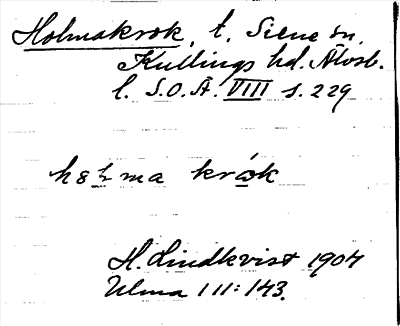 Holmakrok, t. Siene sn,
Kullings hd. Älvsb.
l. S.O.Ä. VIII s. 229
hol ma krok
H. Lindkvist 1904
Ulma 111:143.